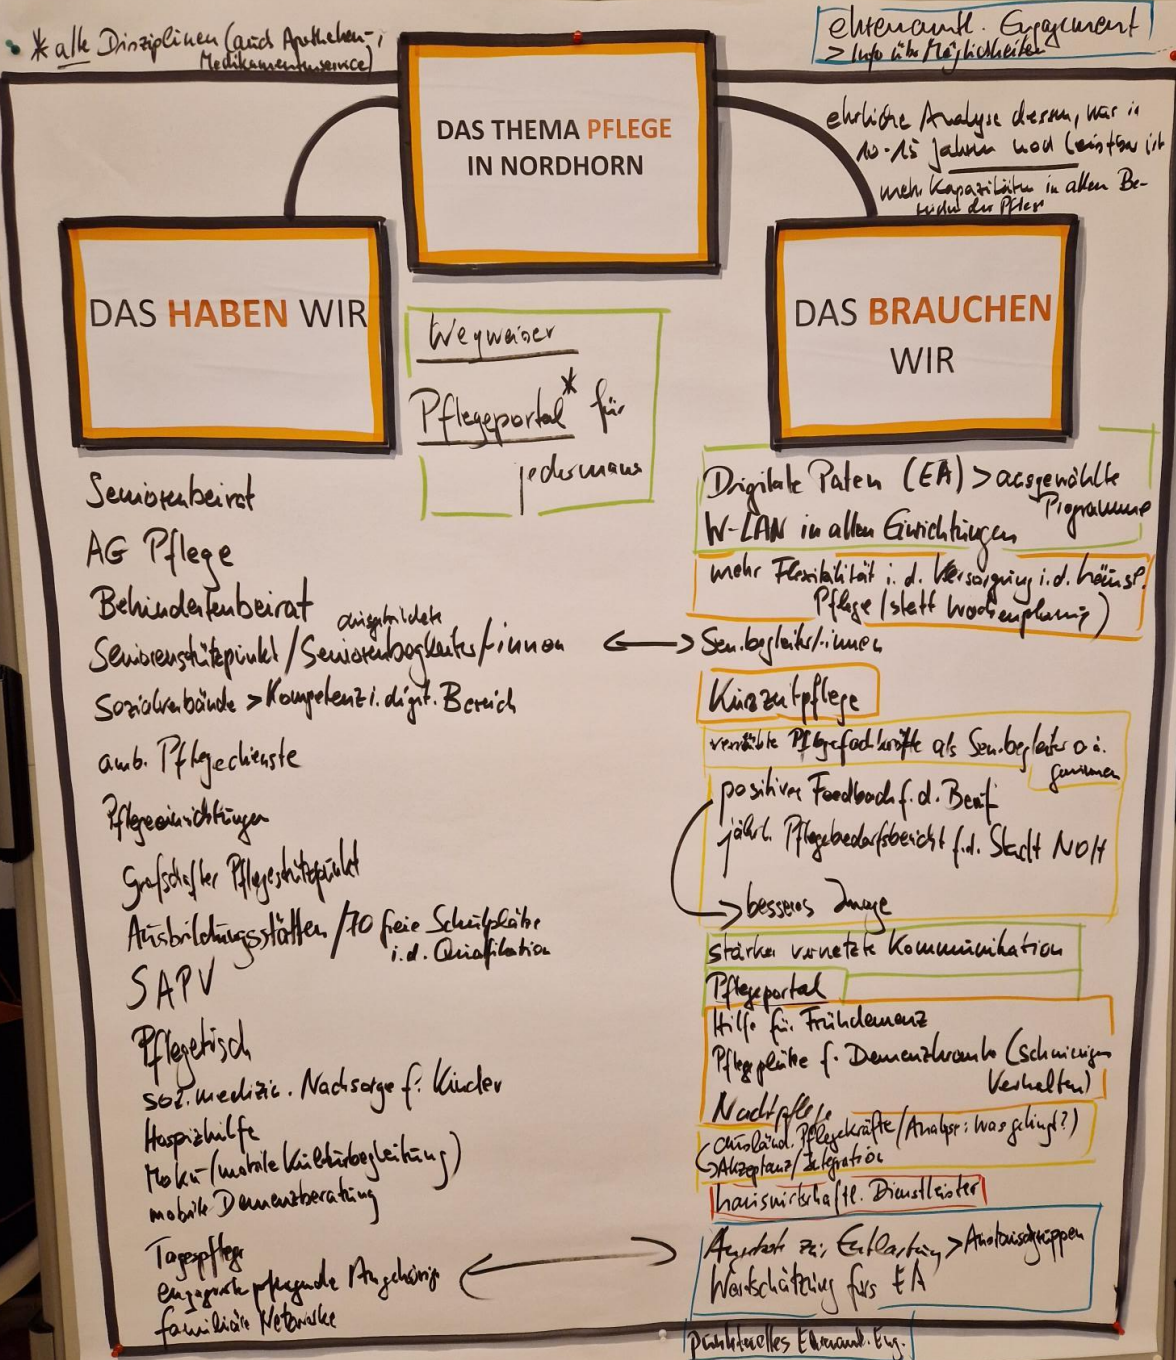 * alle Disziplinen (auch Apotheken-,
Medikamentenservice)
ehrenamtl. Engagement
> Info über Möglichkeiten
DAS THEMA PFLEGE
IN NORDHORN
ehrliche Analyse dessen, was in
10-15 Jahren noch leistbar ist
mehr Kapazitäten in allen Be-
reichen der Pflege
DAS HABEN WIR
Wegweiser
Pflegeportal* für
jedermann
DAS BRAUCHEN
WIR
Seniorenbeirat
AG Pflege
Behindertenbeirat
ausgebildete
Seniorenstützpunkt/Seniorenbegleiter/-innen
Sozialverbände > Kompetenz i. digit. Bereich
amb. Pflegedienste
Pflegeeinrichtungen
Grafschafter Pflegestützpunkt
Ausbildungsstätten / 70 freie Schulplätze
i. d. Qualifikation
SAPV
Pflegetisch
soz. medizin. Nachsorge f. Kinder
Hospizhilfe
Moku-(mobile Kulturbegleitung)
mobile Demenzberatung
Tagespflege
engagierte pflegende Angehörige
familiäre Netzwerke
Digitale Paten (EA) > ausgewählte
Programme
W-LAN in allen Einrichtungen
mehr Flexibilität i. d. Versorgung i. d. häusl.
Pflege (statt Wochenplanung)
Sen.begleiter/-innen
Kurzzeitpflege
verstärkte Pflegefachkräfte als Sen.begleiter o. ä.
gewinnen
positives Feedback f. d. Beruf
jährl. Pflegebedarfsbericht f. d. Stadt NOH
> besseres Image
stärker vernetzte Kommunikation
Pflegeportal
Hilfe für Frühdemenz
Pflegeplätze f. Demenzkranke (schwieriges
Verhalten)
Nachtpflege
ausländ. Pflegekräfte/Analyse: Was gelingt?)
Akzeptanz/Integration
hauswirtschaftl. Dienstleister
Angebote zur Entlastung >
Wertschätzung fürs EA
punktuelles Ehrenamtl. Eng.